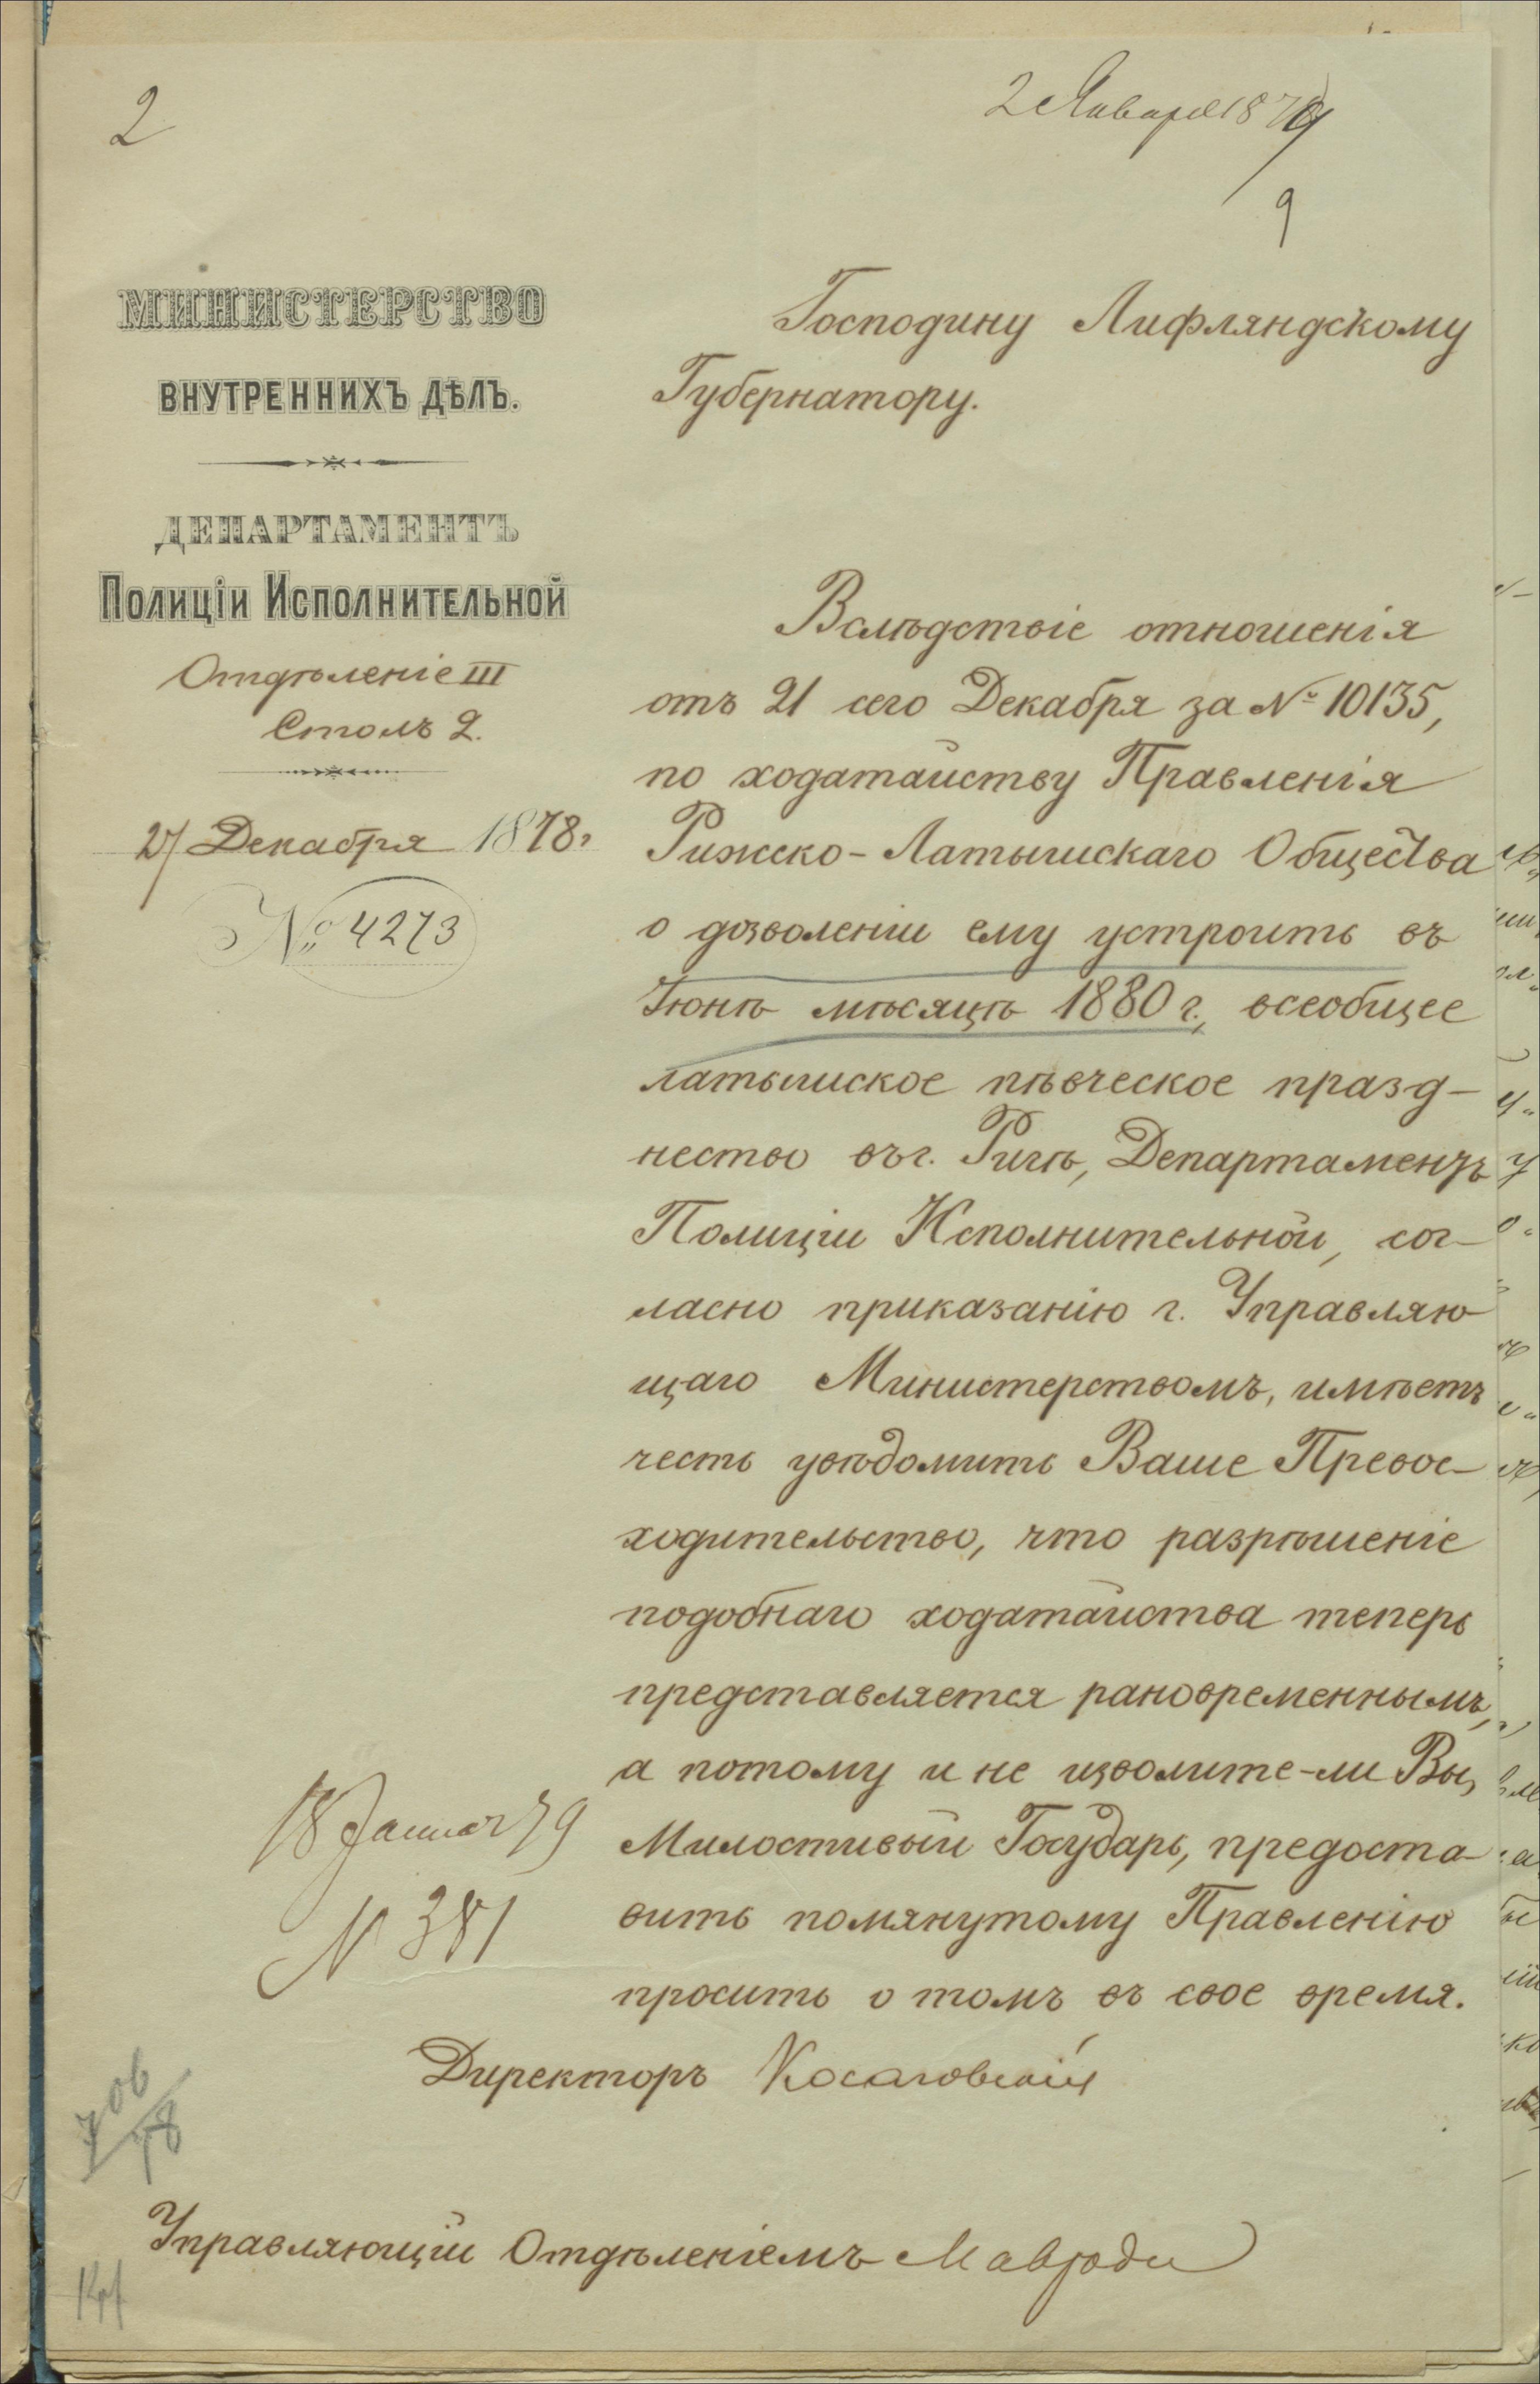 2
2 Января 1879
9
МИНИСТЕРСТВО
ВНУТРЕННИХЪ ДѢЛЪ.
ДЕПАРТАМЕНТЪ
Полиціи Исполнительной
Отдѣленіе III
Столъ 2.
27 Декабря 1878 г.
№ 4273
Господину Лифляндскому
Губернатору.
Вслѣдствіе отношенія
отъ 21 сего Декабря за № 10135,
по ходатайству Правленія
Рижско-Латышскаго Общества
о дозволеніи ему устроить въ
Іюнѣ мѣсяцѣ 1880 г., всеобщее
латышское пѣвческое празд-
нество въ г. Ригѣ, Департаментъ
Полиціи Исполнительной, сог-
ласно приказанію г. Управляю
щаго Министерствомъ, имѣетъ
честь увѣдомить Ваше Превос-
ходительство, что разрѣшеніе
подобнаго ходатайства теперь
представляется рановременнымъ,
а потому и не изволите-ли Вы,
Милостивый Государь, предоста-
вить помянутому Правленію
просить о томъ въ свое время.
Директоръ Косаговскій
18 Januar 79
N 381
706
78
Управляющій Отдѣленіемъ Мавроди